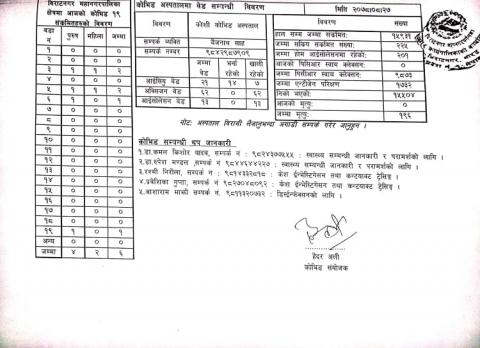 विराटनगर महानगरपालिका
क्षेत्रमा आजको कोभिड १९
संक्रमितहरुको विवरण
वडा नं पुरुष महिला जम्मा
१ ० ० ०
२ ० ० ०
३ १ १ २
४ ० ० ०
५ १ १ २
६ १ ० १
७ ० ० ०
८ ० ० ०
९ ० ० ०
१० ० ० ०
११ ० ० ०
१२ ० ० ०
१३ ० ० ०
१४ ० ० ०
१५ ० ० ०
१६ ० ० ०
१७ ० ० ०
१८ ० ० ०
१९ १ ० १
अन्य ० ० ०
जम्मा ४ २ ६
कोभिड अस्पतालमा बेड सम्बन्धी विवरण
विवरण कोशी कोभिड अस्पताल
सम्पर्क व्यक्ति बैजनाथ साह
सम्पर्क नम्बर ९८४२९८७९०९
जम्मा बेड भर्ना रहेको खाली रहेको
आईसियु बेड २१ १४ ७
अक्सिजन बेड ६२ ० ६२
आईसोलेसन बेड १३ ० १३
मिति: २०७८।०८।२७
विवरण संख्या
हाल सम्म जम्मा संक्रमित: १५९३१
जम्मा सक्रिय संक्रमित संख्या: २२५
जम्मा होम आईसोलेसनमा रहेको: २०१
आजको पिसिआर स्वाब कलेक्सन: ०
जम्मा पिसीआर स्वाब कलेक्सन: ९८७३
जम्मा एन्टीजेन परिक्षण १७३२
निको भएको: १५५०४
आजको मृत्यु: ०
जम्मा मृत्यु: १९६
नोट: अस्पताल बिरामी लैजानुभन्दा अगाडी सम्पर्क गरेर जानुहुन ।
कोभिड सम्बन्धी थप जानकारी
१.डा.कमल किशोर यादव, सम्पर्क नं : ९८२४३७७८५५ : स्वास्थ्य सम्बन्धी जानकारी र परामर्शको लागि ।
२.डा.रुपेश मण्डल ,सम्पर्क नं ९८४४६४४२२७ : स्वास्थ्य सम्बन्धी जानकारी र परामर्शको लागि ।
३.रश्मी निरौला, सम्पर्क नं: ९८१४३३२८१८ : केश ईन्भेस्टिगेसन तथा कन्ट्याक्ट ट्रेसिङ्ग ।
४.प्रबेशिका गुप्ता, सम्पर्क नं: ९८२७०४८०९२ : केश ईन्भेस्टिगेसन तथा कन्ट्याक्ट ट्रेसिङ्ग ।
५.आशाराम माझी सम्पर्क नं. ९८११३२०७३२ : डिस्ईन्फेक्सनको लागि ।
हैदर अली
कोभिड संयोजक